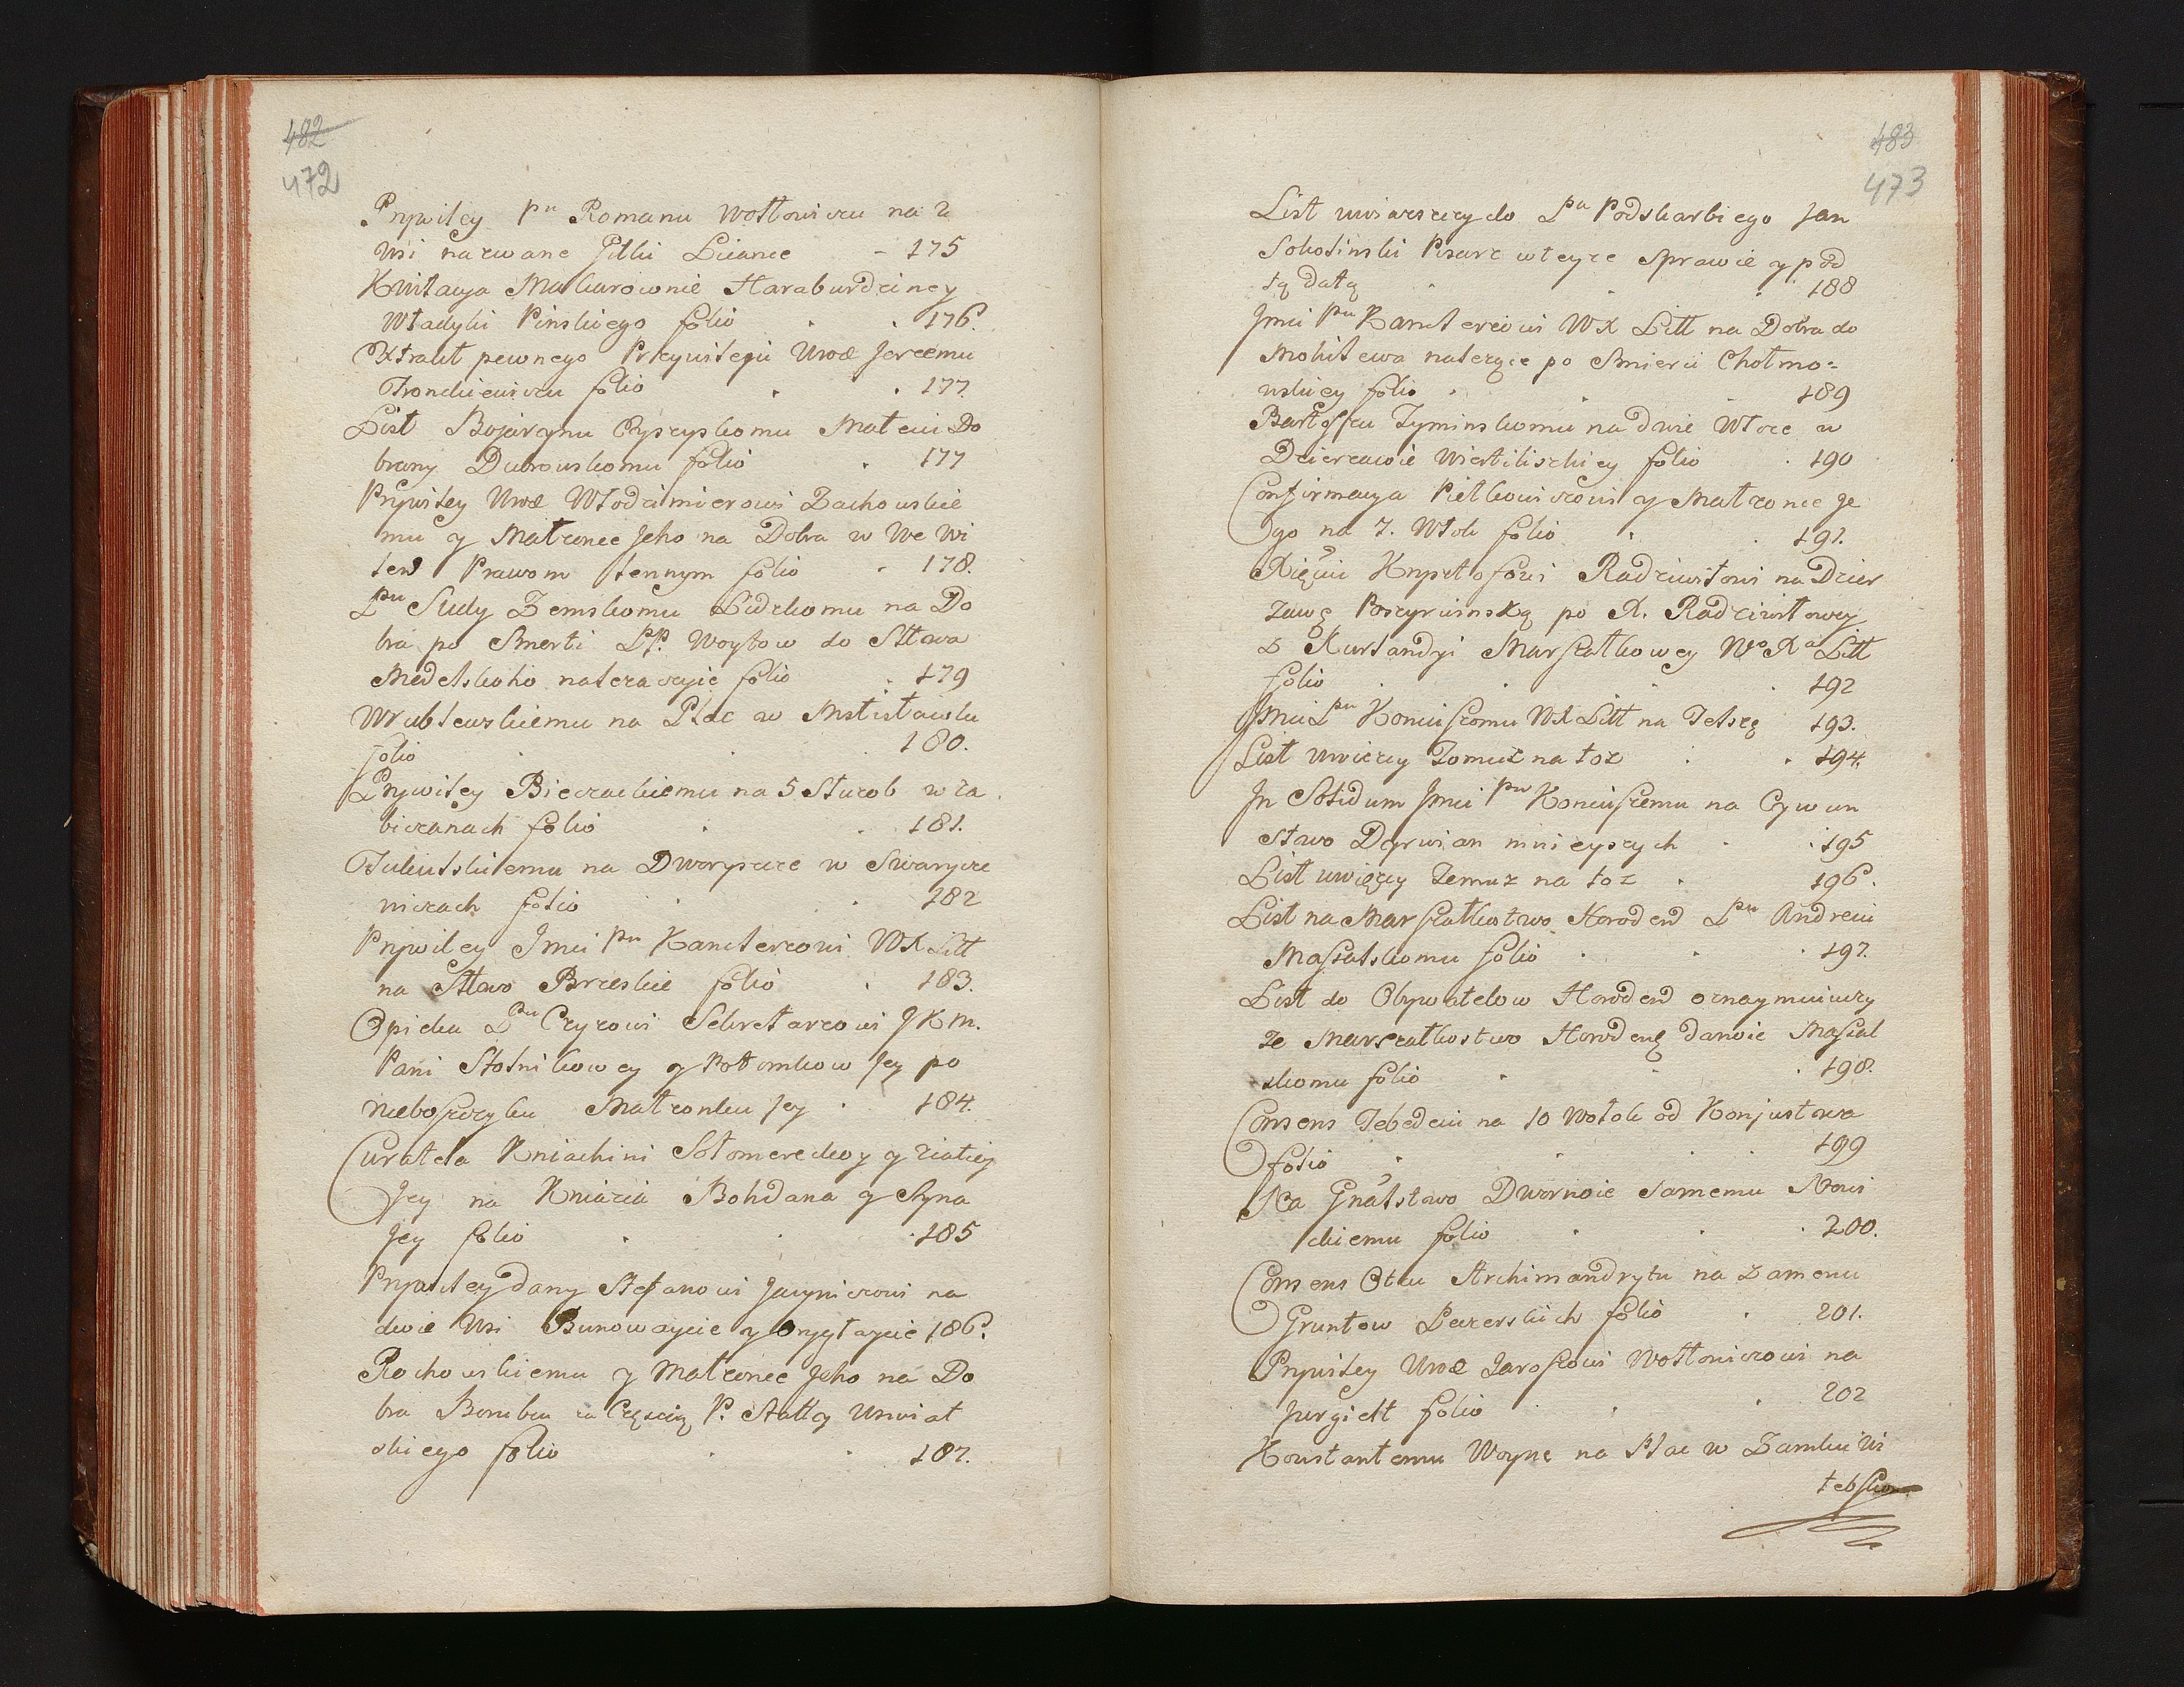 482
472
Prywiley pu Romanu Wołłowiczu na 2
Wsi nazwane Pilki Licance - 175
Kwitacya Makarownie Haraburdziney
Władyki Pinskiego folio . . 176.
Extrakt pewnego Przywileju Urodz Jerzemu
folio . . 177.
List Bojarzynu Mateui Do
Dubrowskomu folio . 177
Prywiley Urodz Włodzimierowi Zachowskie
mu y Małżonce Jeho na Dobra w We Wi
Prawom lennym folio . 178.
Pu Sudy Zemskomu Lidzkomu na Do
bra po Smerti PP. Woytow do Sttwa
Medelskoho należaczyie folio . 179
Wrublewskiemu na Plac w Mstisławlu
folio . . . 180.
Prywiley Bieczackiemu na 5 Służob w Ża
biczanach folio . . 181.
na Dworyszcze w Swarycze
wiczach folio . . 182
Prywiley Jmci Pu Kanclerzowi WX Litt
na Sttwo Brzeskie folio . 183.
Opieka Pu Czyżowi Sekretarzowi JKM.
Pani Stolnikowey y Potomkow Jey po
nieboszczyku Małżonku Jey . 184.
Curatela Kniachini Sołomereckoy y ziatiey
Jey na Kniazia Bohdana y Syna
Jey folio . . . 185
Prywiley dany Stefanowi Jacyniczowi na
dwie Wsi 186.
Rochowskiemu y Małżonce Jeho na Do
bra za Częścią P. Stattą Uswiat
skiego folio . . 187.
483
473
List uwiaszczy do Pa Podskarbiego Jan
Sokolinski Pisarz wteyże Sprawie y pod
tą datą . . . 188
Jmci Pu Kanclerzowi WX Litt na Dobra do
Mohilewa należące po Smierci Chołmo=
wskiey folio . . . 189
Bartoszu Zyminskomu na dwie Włoce w
Dzierżawie folio . 190
Confirmacya Pietkowiczowi y Małżonce Je
go na 7. Włok folio . . 191.
Xięciu Krysztofowi Radziwiłowi na Dzier
żawę po X. Radziwiłowey
z Kurlandyi Marszałkowey Wo Xa Litt
folio . . . . 192
Jmci Pu Koniuszomu WX Litt na Telszę 193.
List uwieczy Tomuż na toż . . 194.
In Solidum Jmci Pu Koniuszemu na Cywun
stwo Dyrwian mnieyszych . . 195
List uwięczy Temuż na toż . 196.
List na Marszałkostwo Horodeń Pu Andreiu
Massalskomu folio . . . 197.
List do Obywatelow Horodeń oznaymuiuczy
że Marszałkostwo Horodenę danoie Massal
skomu folio . . . 198.
Consens Lebedeiu na 10 Wołok od Konjustwa
folio . . . . 199
Na Gnatstwo Dwornoie samemu Nowi
ckiemu folio . . . 200.
Consens Otcu Archimandrytu na Zamenu
Gruntow Peczerskich folio . 201.
Prywiley Urodz Jaroszowi Wołłowiczowi na
Jurgielt folio . . 202
Konstantemu Woynę na Plac w Zamku Wi
tebskom